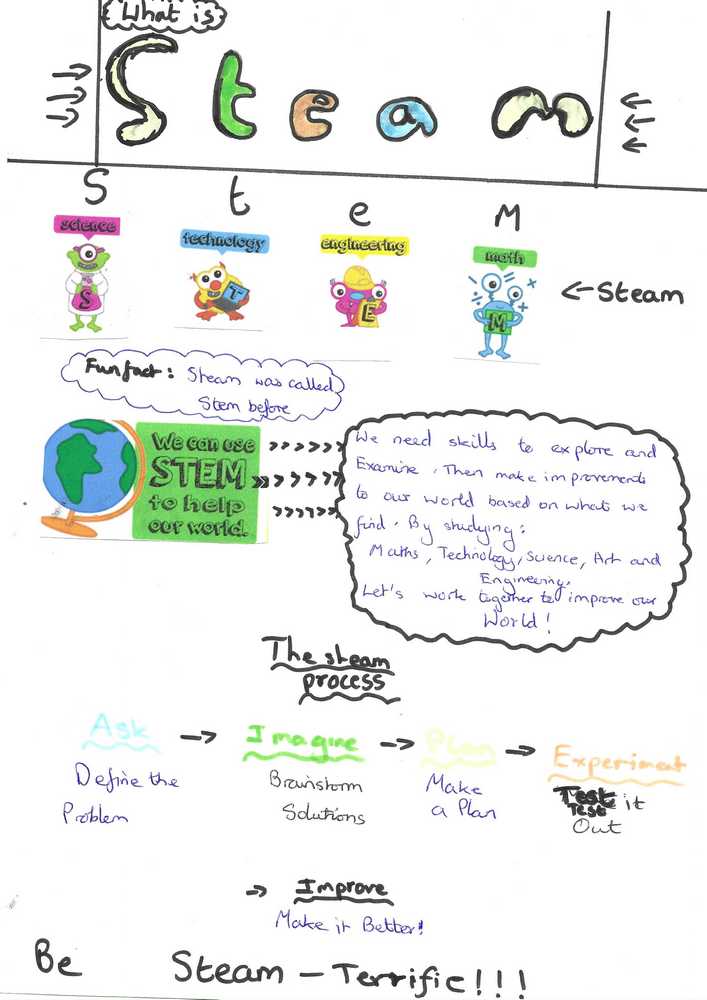 What is
Steam
S t e M
science technology engineering math
S T E M
← Steam
Fun fact: Steam was called
Stem before
We can use
STEM
to help
our world.
We need skills to explore and
Examine. Then make improvements
to our world based on what we
find. By studying:
Maths, Technology, Science, Art and
Engineering.
Let's work together to improve our
World!
The steam
process
Ask → Imagine → Plan → Experiment
Define the
Problem
Brainstorm
Solutions
Make
a Plan
Test it
Test
Out
→ Improve
Make it Better!
Be Steam - Terrific!!!